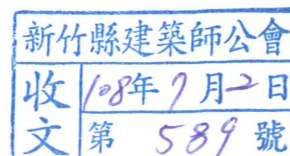 新竹縣建築師公會
收文
108年7月2日
第 589 號